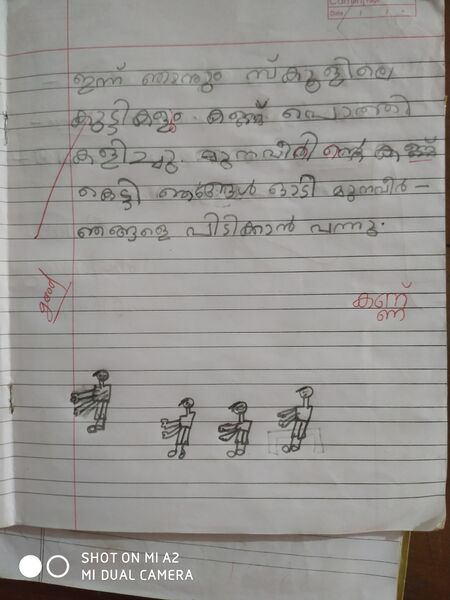 Date
ഇന്ന് ഞാനും സ്കൂളിലെ
കുട്ടികളും കണ്ണ് പൊത്തി
കളിച്ചു. മുനവീറിന്റെ കണ്ണ്
കെട്ടി ഞങ്ങൾ ഓടി മുനവീർ -
ഞങ്ങളെ പിടിക്കാൻ വന്നു.
good
കണ്ണ്
ണ്ണ്
SHOT ON MI A2
MI DUAL CAMERA